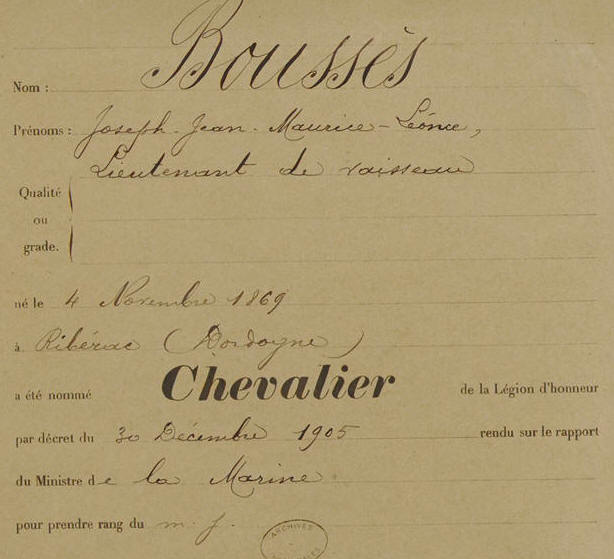 Nom : Boussès
Prénoms : Joseph-Jean-Maurice-Léonce,
Lieutenant de vaisseau
Qualité
ou
grade.
né le 4 Novembre 1869
à Ribérac (Dordogne)
a été nommé Chevalier de la Légion d'honneur
par décret du 30 Décembre 1905 rendu sur le rapport
du Ministre de la Marine
pour prendre rang du m. j.
ARCHIVES